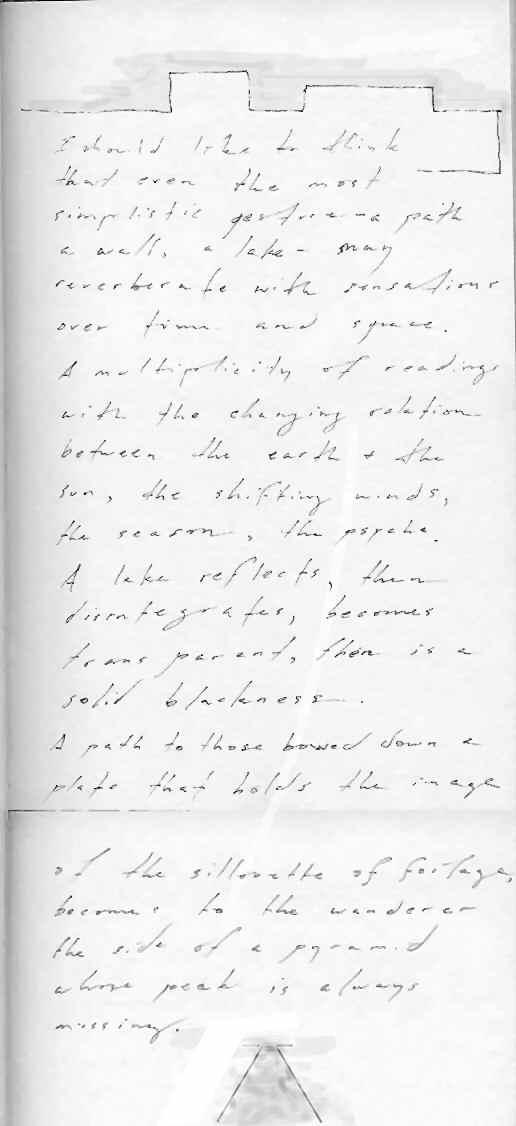 I should like to think
that even the most
simplistic gesture - a path
a wall, a lake - may
reverberate with sensations
over time and space.
A multiplicity of readings
with the changing relation
between the earth + the
sun, the shifting winds,
the season, the psyche.
A lake reflects, then
disintegrates, becomes
transparent, then is a
solid blackness.
A path to those bowed down a
plate that holds the image
of the sillouette of foilage,
becomes to the wanderer
the side of a pyramid
whose peak is always
missing.